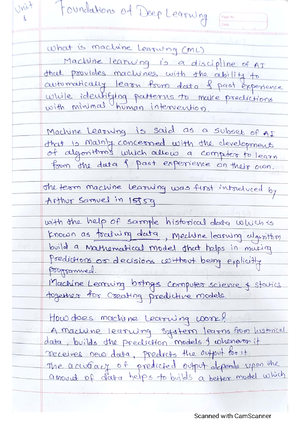 Unit
1
Foundations of Deep Learning
what is machine Learning (ML)
Machine learning is a discipline of AI
that provides machines with the ability to
automatically learn from data & past experience
while identifying patterns to make predictions
with minimal human intervention.
Machine Learning is said as a subset of AI
that is mainly concerned with the development
of algorithms which allow a computer to learn
from the data & past experience on their own.
The term machine learning was first introduced by
Arthur Samuel in 1959
with the help of sample historical data which is
known as training data, machine learning algorithm
build a Mathematical model that helps in making
predictions or decisions without being explicitly
programmed.
Machine Learning brings computer science & statics
together for creating predictive models.
How does machine Learning work?
A machine learning system learns from historical
data, builds the prediction models & whenever it
receives new data, predicts the output for it
The accuracy of predicted output depends upon the
amount of data helps to builds a better model which
Scanned with CamScanner